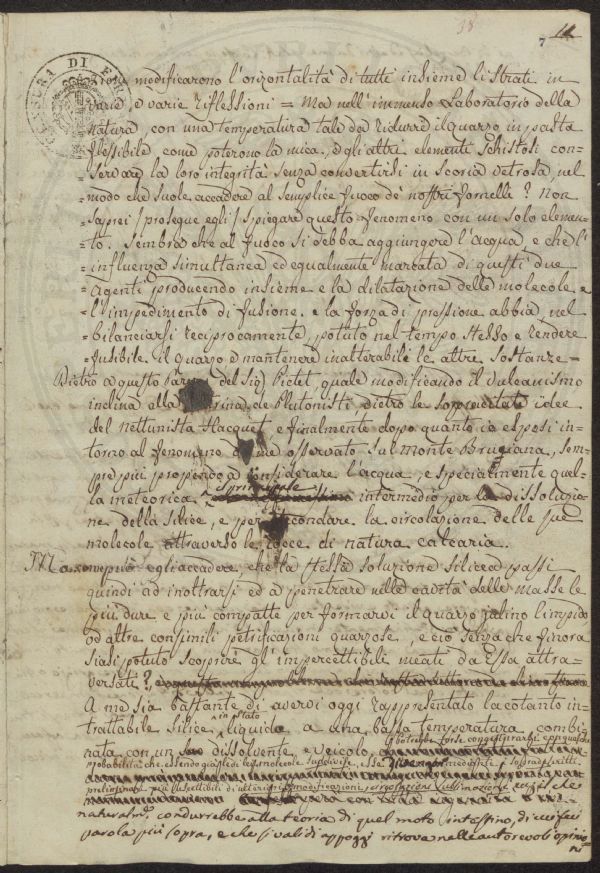 38
7 11
CENSURA DI FIR
zioni modificarono l'orizontalità di tutti insieme li strati in
varie, e varie riflessioni = Ma nell'immenso Laboratorio della
natura, con una temperatura tale da ridurre il quarzo in pasta
flessibile come poterono la mica, e gli altri elementi schistosi con=
=servare la loro integrità senza convertirsi in scoria vetrosa, nel
modo che suole accadere al semplice fuoco de' nostri fornelli? Non
saprei /prosegue egli/ spiegare questo fenomeno con un solo elemen=
=to. Sembra che al fuoco si debba aggiungere l'acqua, e che l'
=influenza simultanea ed egualmente marcata di questi due
=agenti producendo insieme e la dilatazione delle molecole, e
=l'impedimento di fusione, e la forza di pressione abbia nel
=bilanciarsi reciprocamente, potuto nel tempo stesso e rendere
=fusibile il quarzo e mantenere inalterabili le altre sostanze=
Dietro a questo del Sig.r Pictet, quale modificando il Vulcanismo
inclina alla de Plutonisti dietro le sopracitate idee
del Nettunista Hacquet, e finalmente dopo quanto io esposi in=
torno al fenomeno da me osservato sul monte Brugiana, sem=
pre più propendo a considerare l'acqua, e specialmente quel=
la meteorica, principale intermedio per la dissoluzio=
ne della silice, e per secondare la circolazione delle sue
molecole attraverso le rocce di natura calcaria.
Ma come può egli accadere che la stessa soluzione silicea passi
quindi ad inoltrarsi ed a penetrare nelle cavità delle masse le
più dure e più compatte per formarvi il quarzo jalino limpido
od altre consimili petrificazioni quarzose, e ciò senza che finora
siasi potuto scoprire gl'impercettibili meati da essa attra=
versati?
A me sia bastante di avervi oggi rappresentato la cotanto in=
trattabile silice in stato liquido a una bassa temperatura, combi=
nata con un dissolvente, e veicolo,
potrebbe forse congetturarsi
probabilità che essendo già le di lei molecole suddivise, essa
preliminari più suscettibili di ulteriori modificazioni che
naturalm.e condurrebbe alla teoria di quel moto intestino, di cui feci
parola più sopra, e che sì validi appoggi ritrova nelle autorevoli opinio=
ni